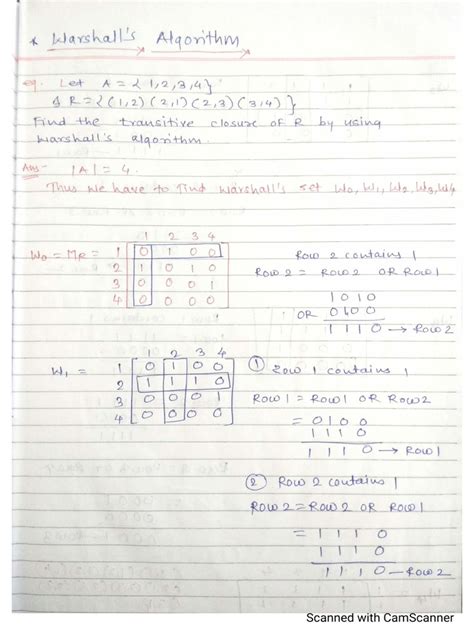 * Warshall's Algorithm
eg. Let A = { 1,2,3,4 }
& R = { (1,2) (2,1) (2,3) (3,4) }
Find the transitive closure of R by using
Warshall's algorithm.
Ans- |A| = 4.
Thus we have to find Warshall's set W0, W1, W2, W3, W4
1 2 3 4
W0 = MR = 1 0 1 0 0
2 1 0 1 0
3 0 0 0 1
4 0 0 0 0
Row 2 contains 1
Row 2 = Row 2 OR Row 1
1 0 1 0
OR 0 1 0 0
1 1 1 0 → Row 2
1 2 3 4
W1 = 1 0 1 0 0
2 1 1 1 0
3 0 0 0 1
4 0 0 0 0
① Row 1 contains 1
Row 1 = Row 1 OR Row 2
= 0 1 0 0
1 1 1 0
1 1 1 0 → Row 1
② Row 2 contains 1
Row 2 = Row 2 OR Row 2
= 1 1 1 0
1 1 1 0
1 1 1 0 → Row 2
Scanned with CamScanner